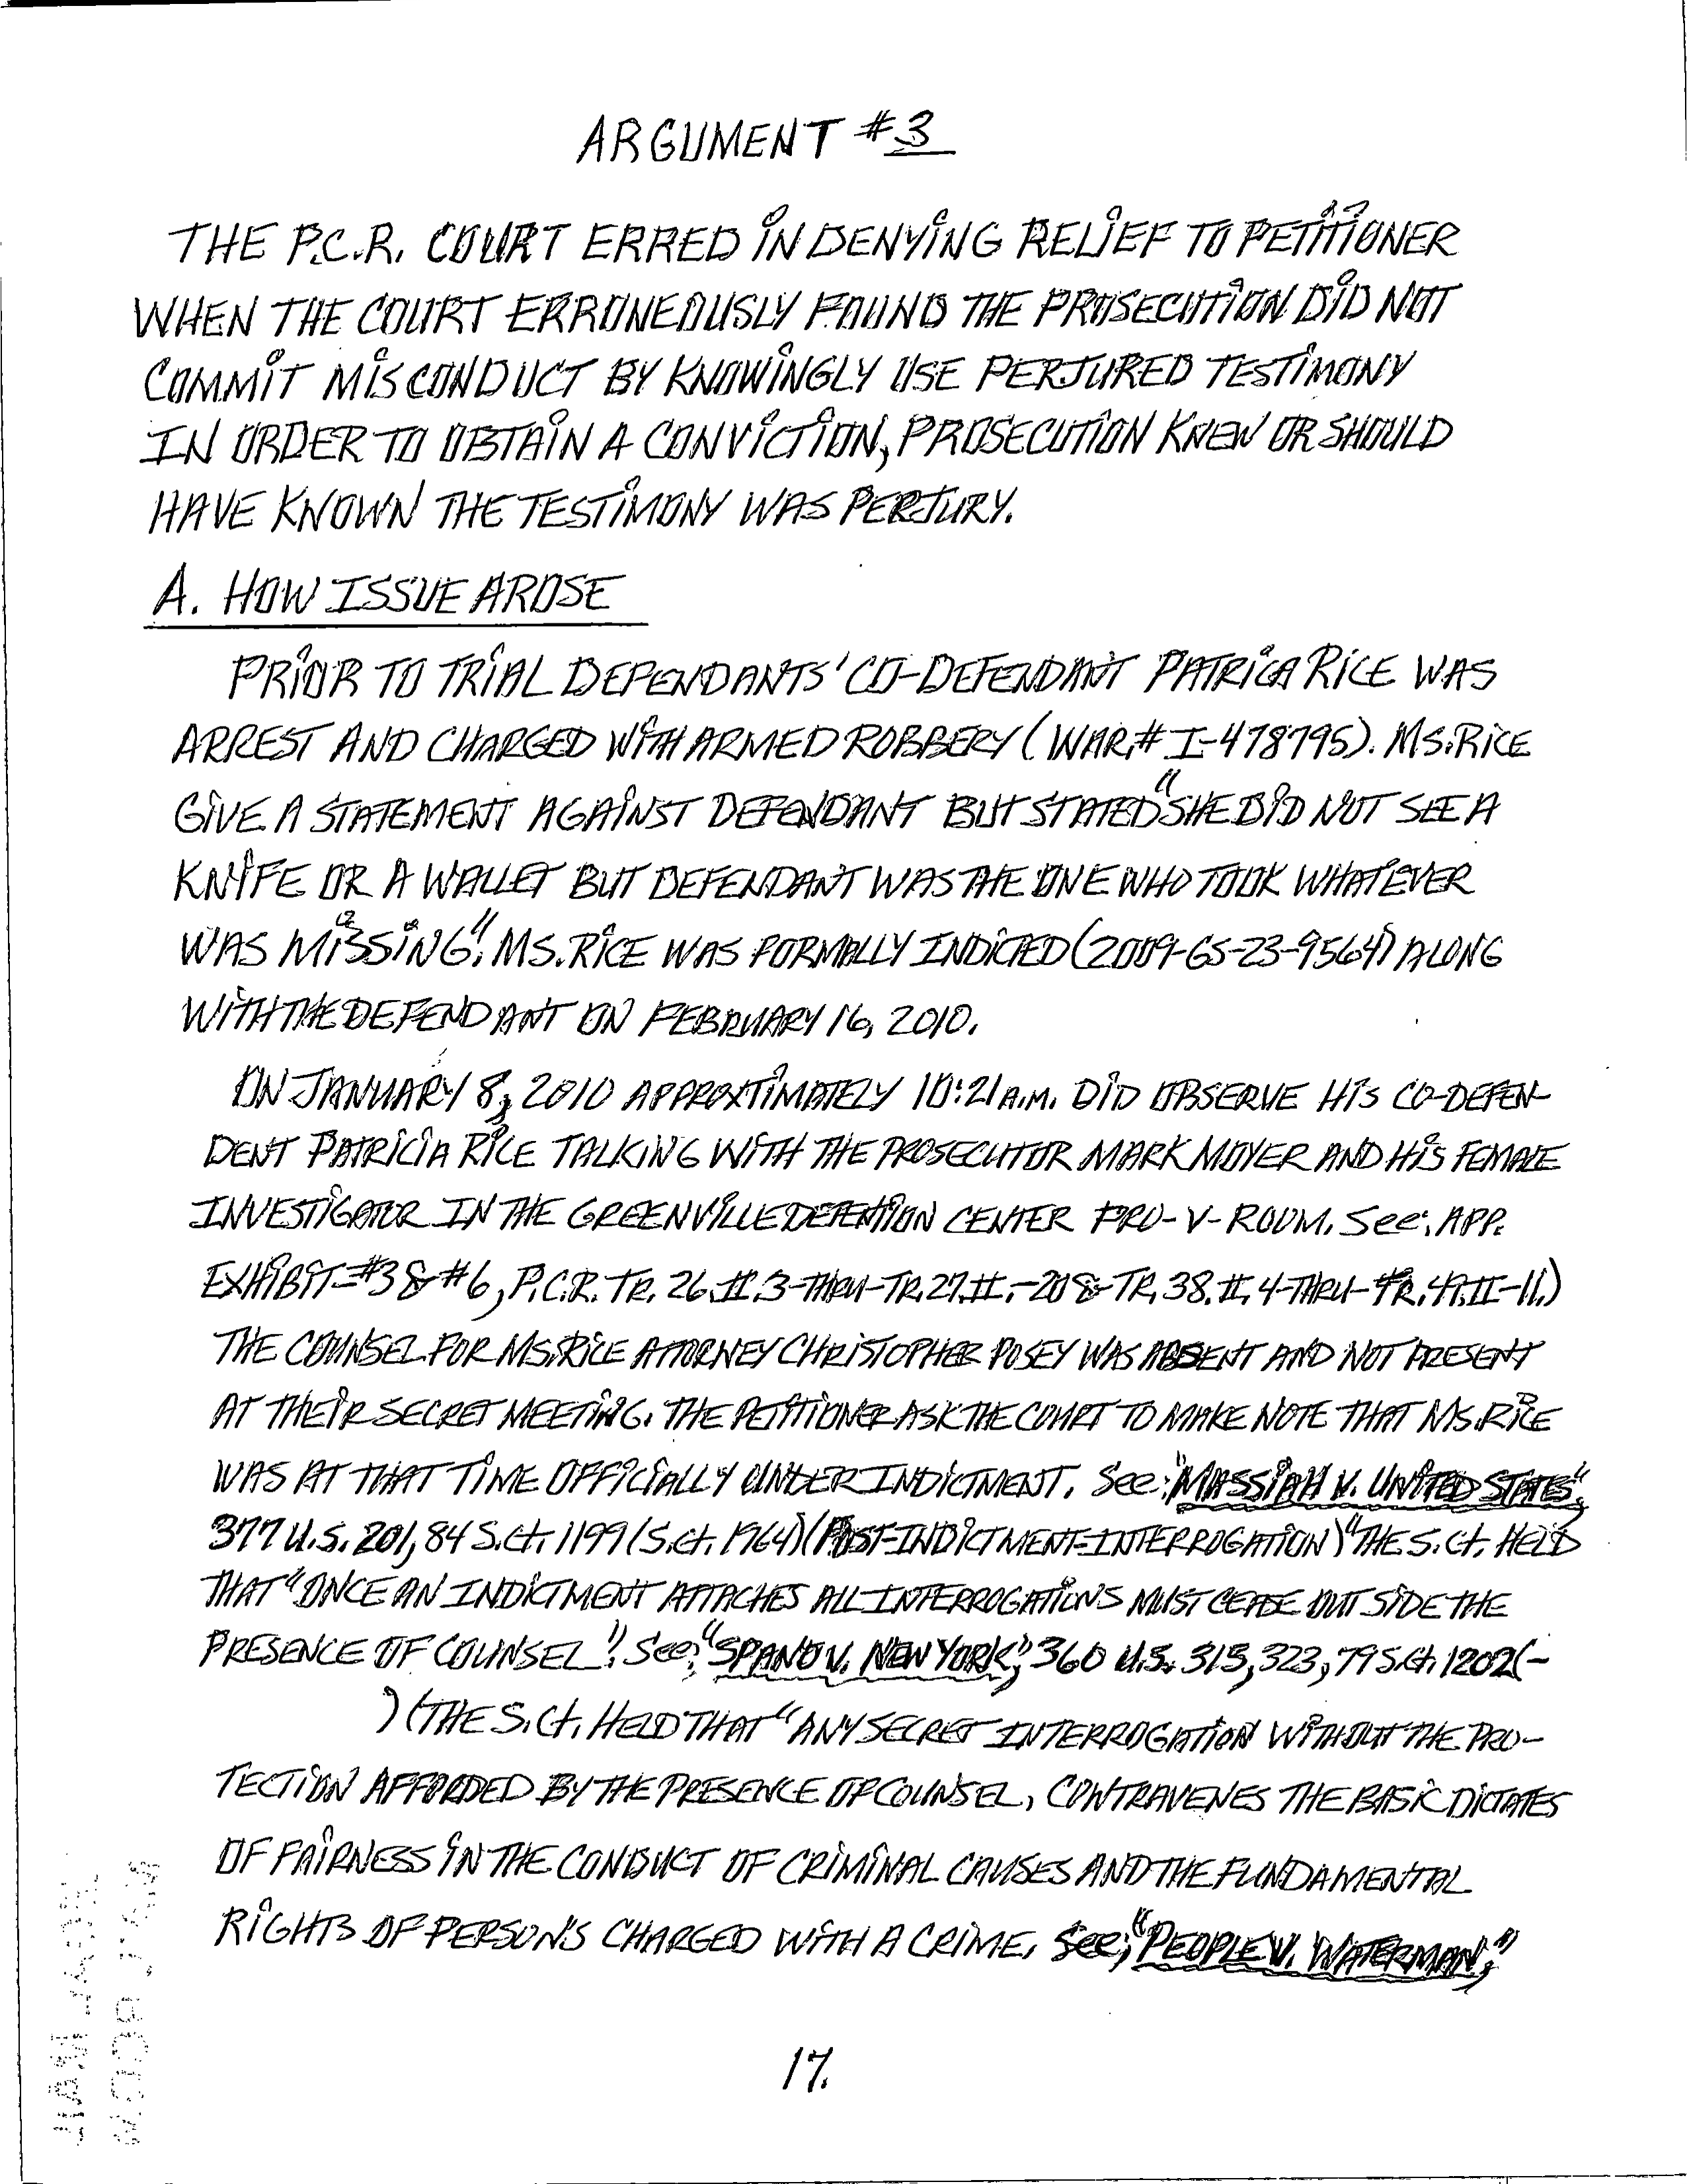 ARGUMENT #3
THE P.C.R. COURT ERRED IN DENYING RELIEF TO PETITIONER
WHEN THE COURT ERRONEOUSLY FOUND THE PROSECUTION DID NOT
COMMIT MISCONDUCT BY KNOWINGLY USE PERJURED TESTIMONY
IN ORDER TO OBTAIN A CONVICTION, PROSECUTION KNEW OR SHOULD
HAVE KNOWN THE TESTIMONY WAS PERJURY.
A. HOW ISSUE AROSE
PRIOR TO TRIAL DEFENDANTS' CO-DEFENDANT PATRICA RICE WAS
ARREST AND CHARGED WITH ARMED ROBBERY (WAR.# I-478795). MS. RICE
GIVE A STATEMENT AGAINST DEFENDANT BUT STATED "SHE DID NOT SEE A
KNIFE OR A WALLET BUT DEFENDANT WAS THE ONE WHO TOOK WHATEVER
WAS MISSING". MS. RICE WAS FORMALLY INDICTED (2009-GS-23-9564) ALONG
WITH THE DEFENDANT ON FEBRUARY 16, 2010.
ON JANUARY 8, 2010 APPROXTIMATELY 10:21 A.M. DID OBSERVE HIS CO-DEFEN-
DENT PATRICIA RICE TALKING WITH THE PROSECUTOR MARK MOYER AND HIS FEMALE
INVESTIGATOR IN THE GREENVILLE DETENTION CENTER PRO-V-ROOM. See: APP.
EXHIBIT-#3 & #6, P.C.R. TR. 26.II.3-THRU-TR.27.II.-20 & TR. 38.II, 4-THRU-TR. 49.II-11.)
THE COUNSEL FOR MS. RICE ATTORNEY CHRISTOPHER POSEY WAS ABSENT AND NOT PRESENT
AT THEIR SECRET MEETING. THE PETITIONER ASK THE COURT TO MAKE NOTE THAT MS. RICE
WAS AT THAT TIME OFFICIALLY UNDER INDICTMENT. See: "MASSIAH V. UNITED STATES",
377 U.S. 201, 84 S.Ct. 1199 (S.Ct. 1964) (POST-INDICTMENT-INTERROGATION) "THE S.Ct. HELD
THAT "ONCE AN INDICTMENT ATTACHES ALL INTERROGATIONS MUST CEASE OUT SIDE THE
PRESENCE OF COUNSEL". See; "SPANO V. NEW YORK," 360 U.S. 315, 323, 79 S.Ct. 1202 (-
) (THE S.Ct. HELD THAT "ANY SECRET INTERROGATION WITHOUT THE PRO-
TECTION AFFORDED BY THE PRESENCE OF COUNSEL, CONTRAVENES THE BASIC DICTATES
OF FAIRNESS IN THE CONDUCT OF CRIMINAL CAUSES AND THE FUNDAMENTAL
RIGHTS OF PERSON'S CHARGED WITH A CRIME. See; "PEOPLE V. WATERMAN,"
17.